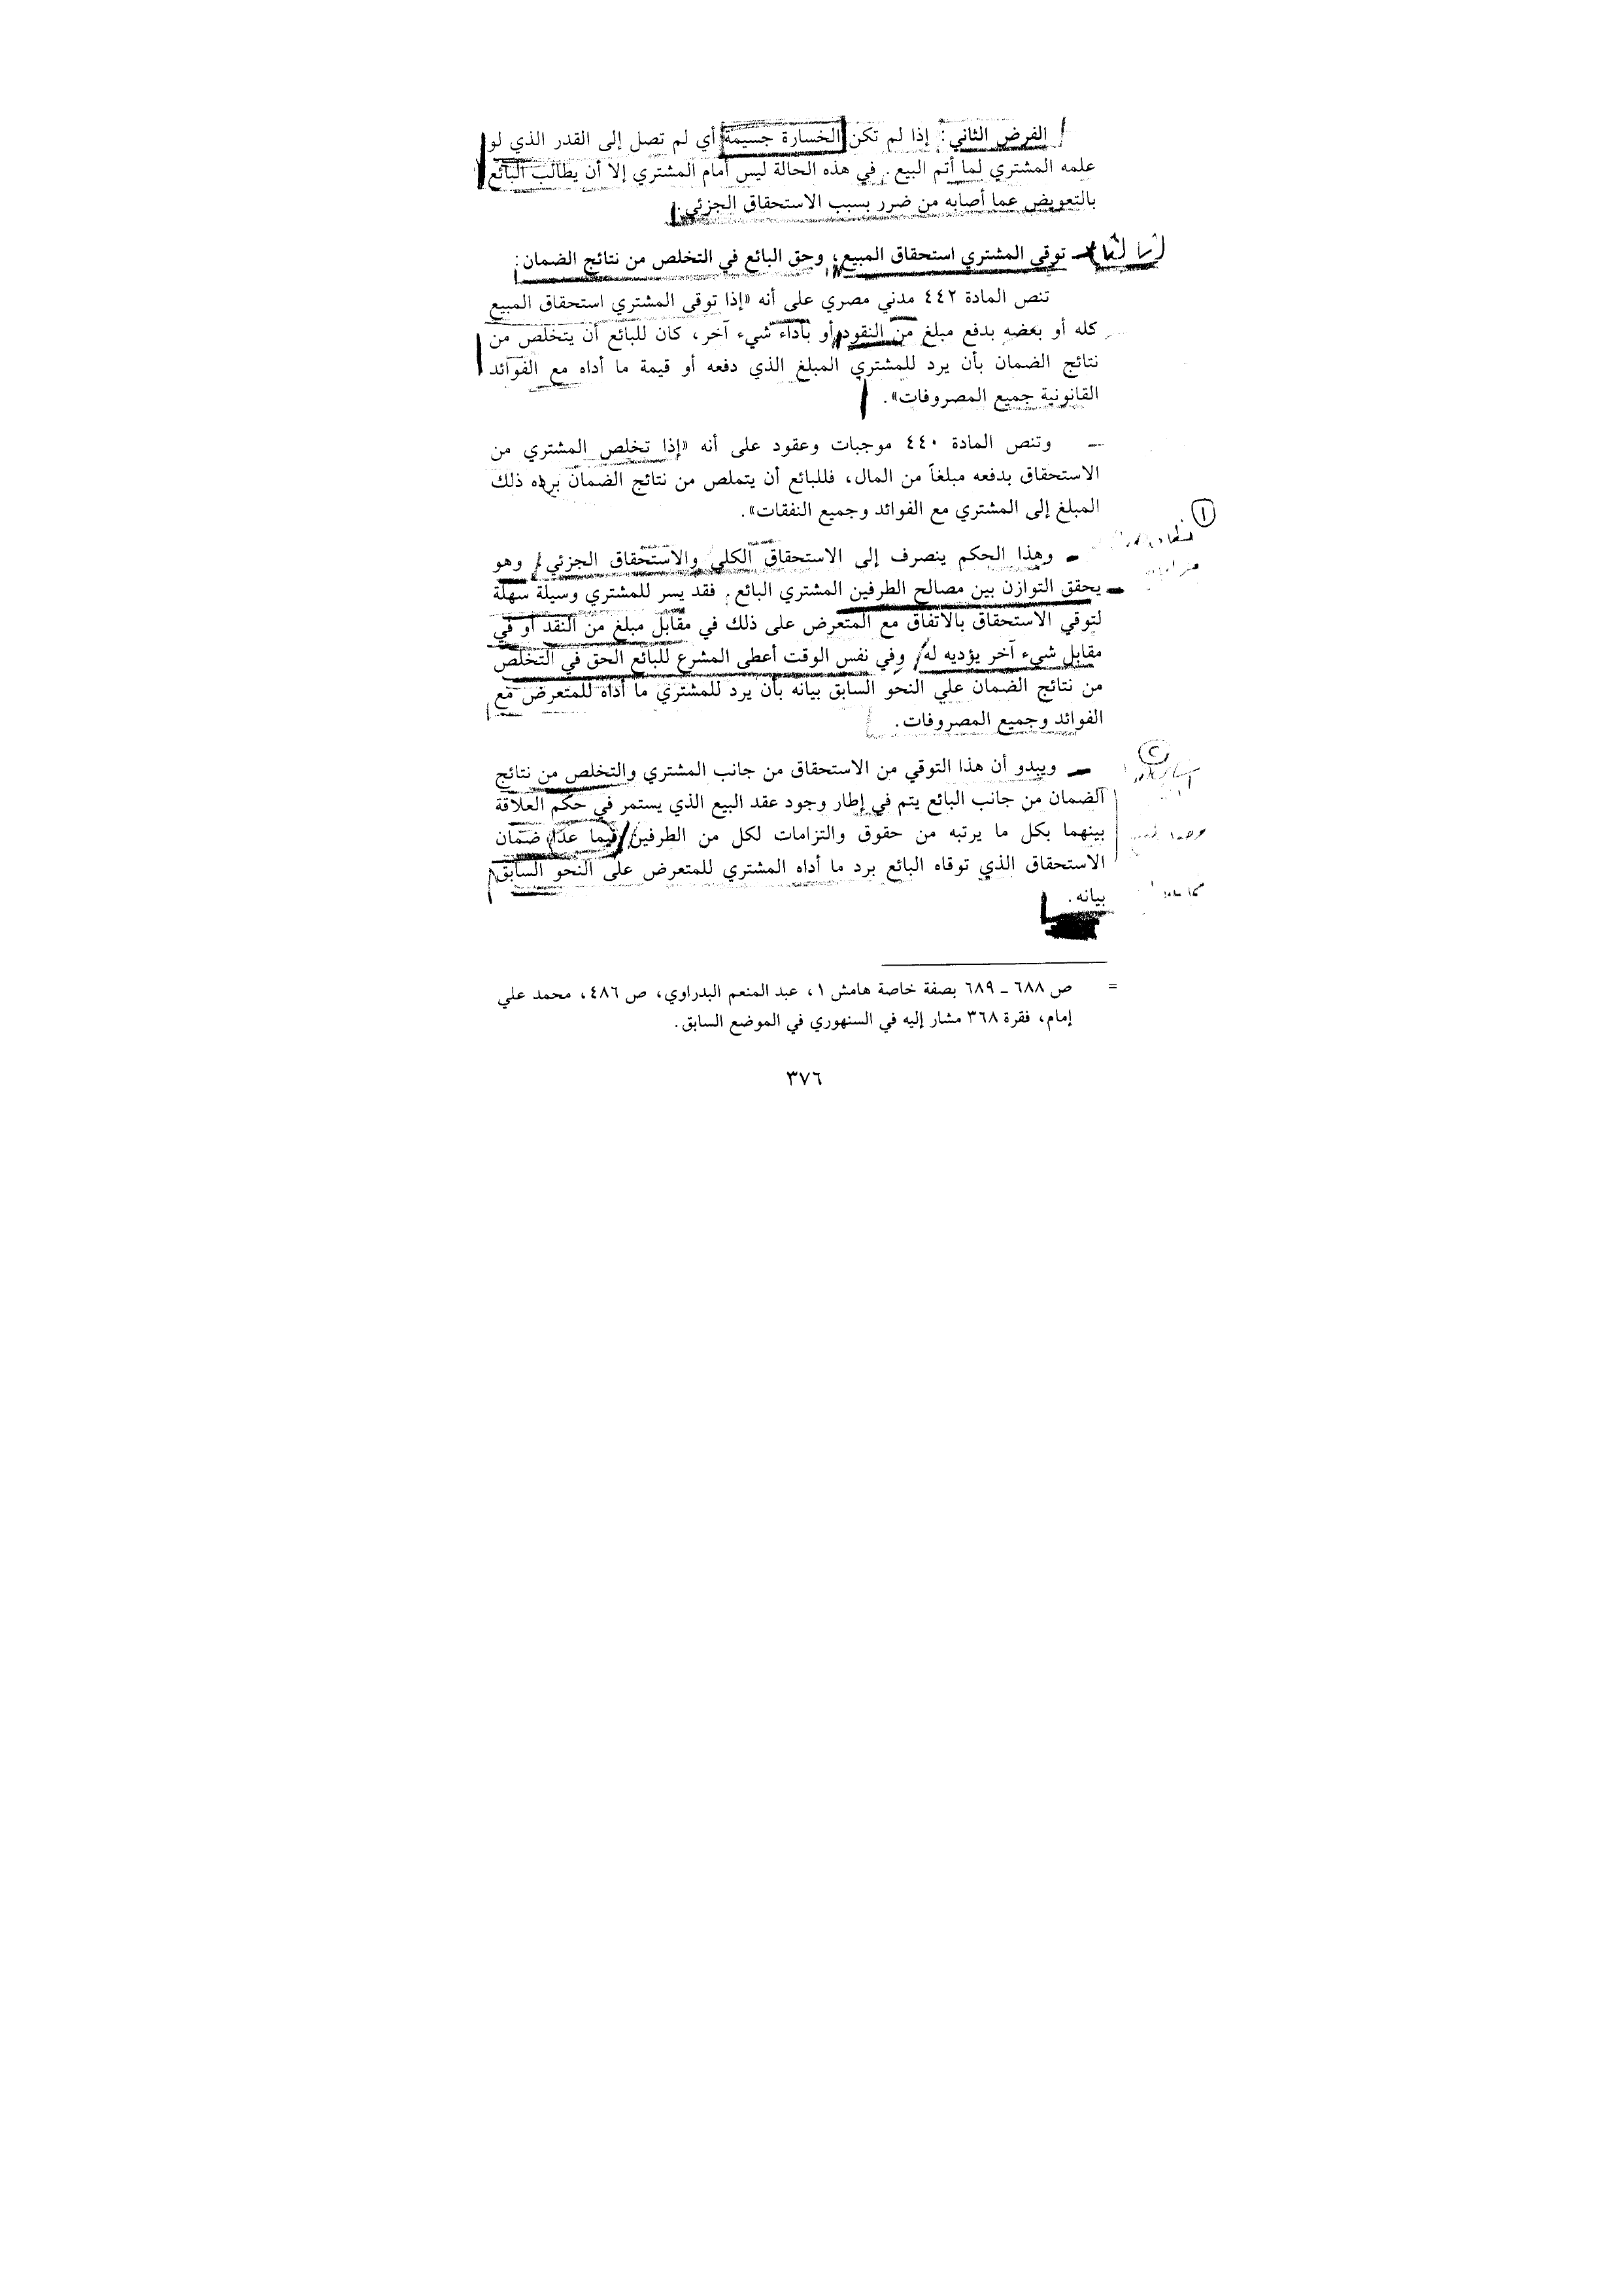 الفرض الثاني: إذا لم تكن الخسارة جسيمة أي لم تصل إلى القدر الذي لو
علمه المشتري لما أتم البيع. في هذه الحالة ليس أمام المشتري إلا أن يطالب البائع
بالتعويض عما أصابه من ضرر بسبب الاستحقاق الجزئي.
ثالثا - توقي المشتري استحقاق المبيع، وحق البائع في التخلص من نتائج الضمان:
تنص المادة ٤٤٢ مدني مصري على أنه «إذا توقى المشتري استحقاق المبيع
كله أو بعضه بدفع مبلغ من النقود أو بأداء شيء آخر، كان للبائع أن يتخلص من
نتائج الضمان بأن يرد للمشتري المبلغ الذي دفعه أو قيمة ما أداه مع الفوائد
القانونية جميع المصروفات».
— وتنص المادة ٤٤٠ موجبات وعقود على أنه «إذا تخلص المشتري من
الاستحقاق بدفعه مبلغاً من المال، فللبائع أن يتملص من نتائج الضمان برده ذلك
المبلغ إلى المشتري مع الفوائد وجميع النفقات».
١
— وهذا الحكم ينصرف إلى الاستحقاق الكلي والاستحقاق الجزئي، وهو
يحقق التوازن بين مصالح الطرفين المشتري البائع. فقد يسر للمشتري وسيلة سهلة
لتوقي الاستحقاق بالاتفاق مع المتعرض على ذلك في مقابل مبلغ من النقد أو في
مقابل شيء آخر يؤديه له، وفي نفس الوقت أعطى المشرع للبائع الحق في التخلص
من نتائج الضمان علي النحو السابق بيانه بأن يرد للمشتري ما أداه للمتعرض مع
الفوائد وجميع المصروفات.
٢
— ويبدو أن هذا التوقي من الاستحقاق من جانب المشتري والتخلص من نتائج
الضمان من جانب البائع يتم في إطار وجود عقد البيع الذي يستمر في حكم العلاقة
بينهما بكل ما يرتبه من حقوق والتزامات لكل من الطرفين فيما عدا ضمان
الاستحقاق الذي توقاه البائع برد ما أداه المشتري للمتعرض على النحو السابق
بيانه.
= ص ٦٨٨ ـ ٦٨٩ بصفة خاصة هامش ١، عبد المنعم البدراوي، ص ٤٨٦، محمد علي
إمام، فقرة ٣٦٨ مشار إليه في السنهوري في الموضع السابق.
٣٧٦